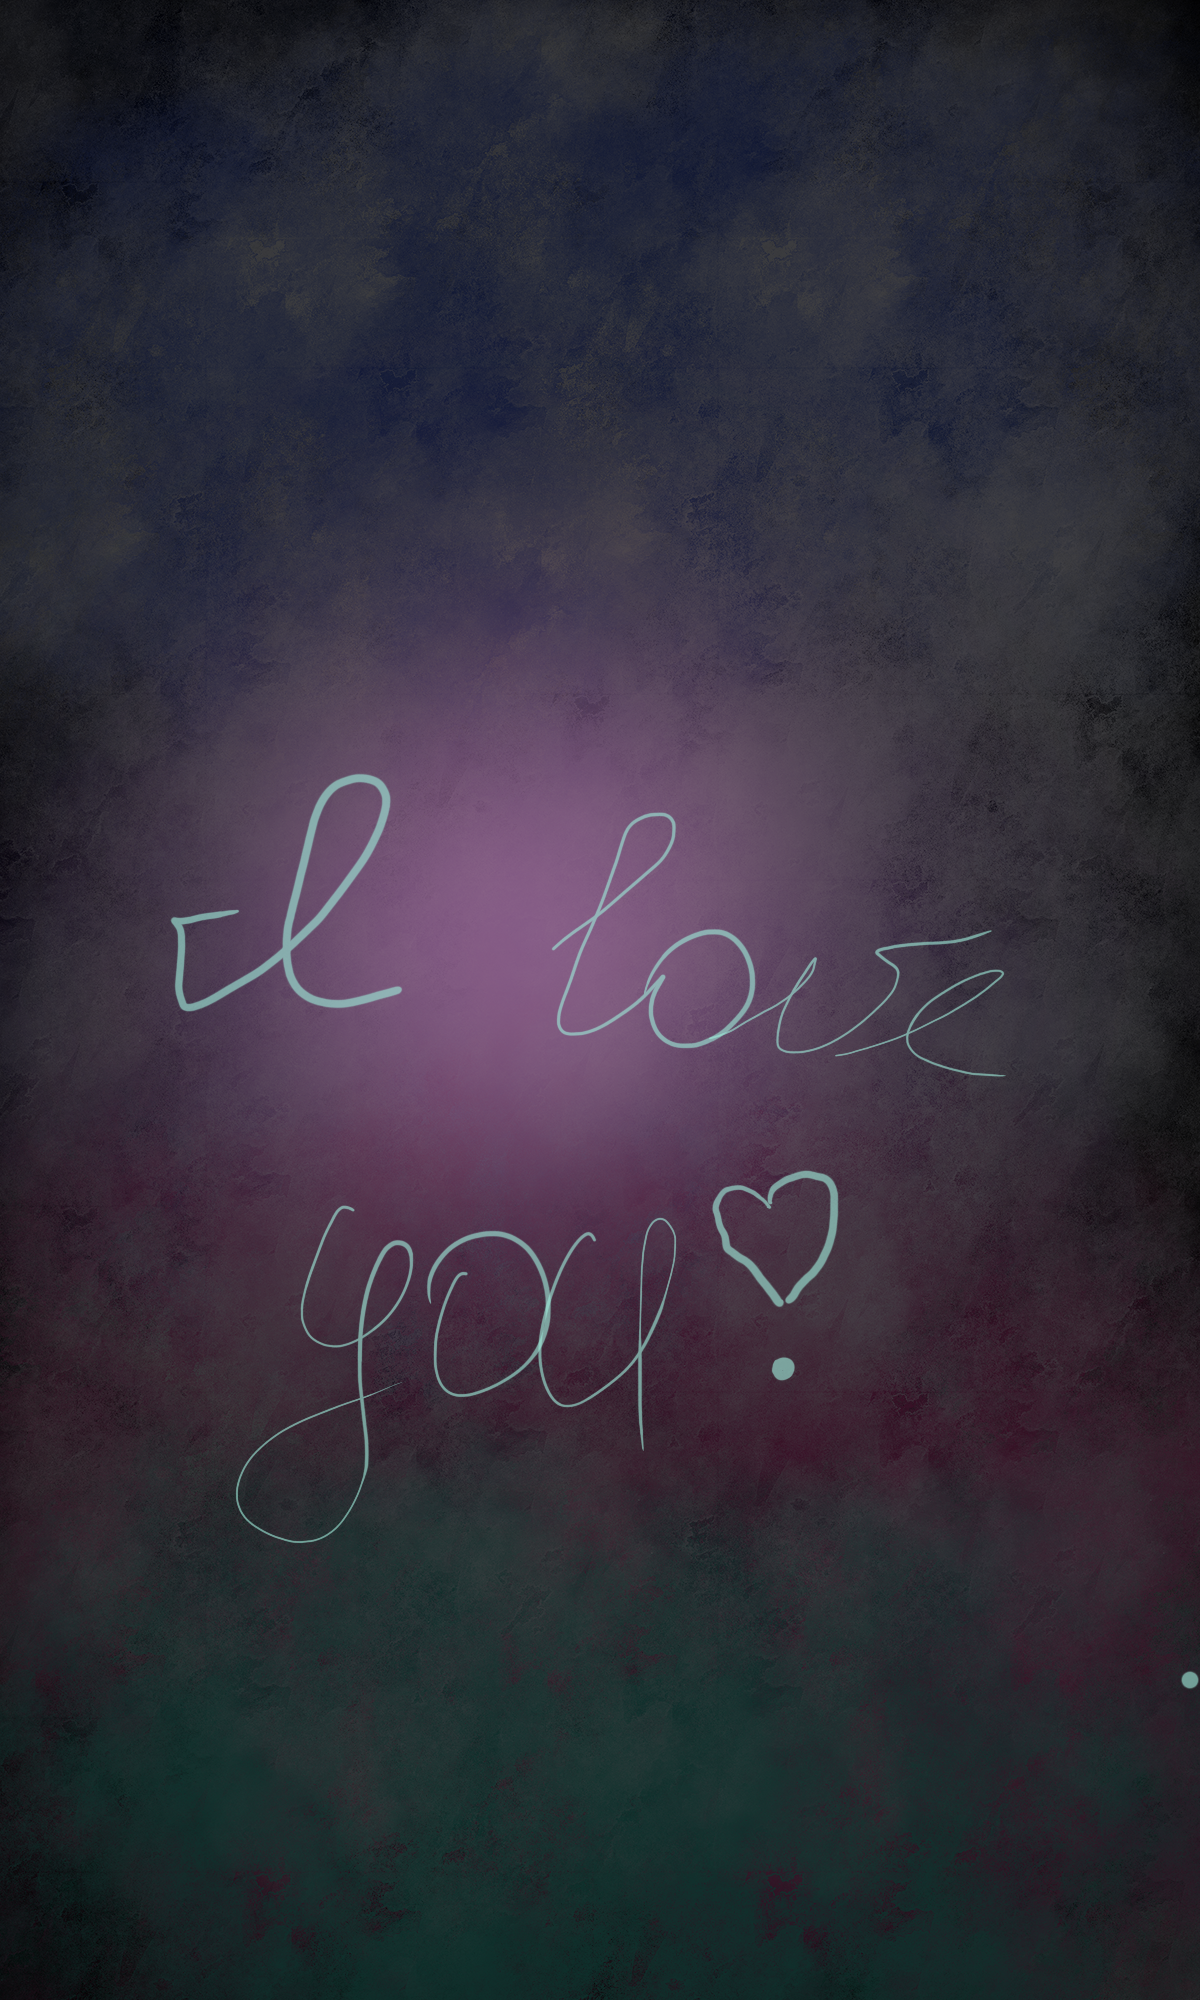 I love
you♡.